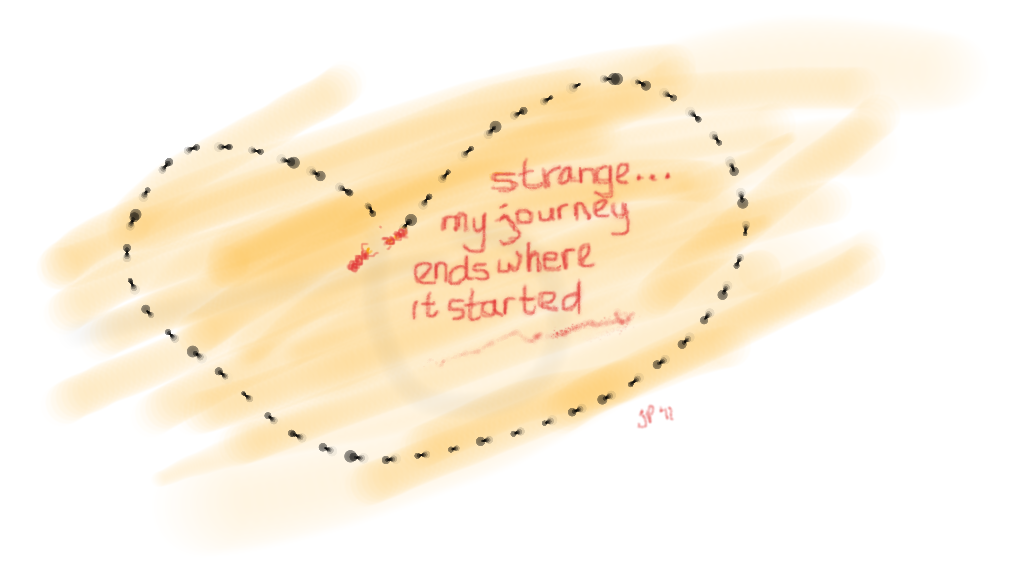 strange...
my journey
ends where
it started
JP '11